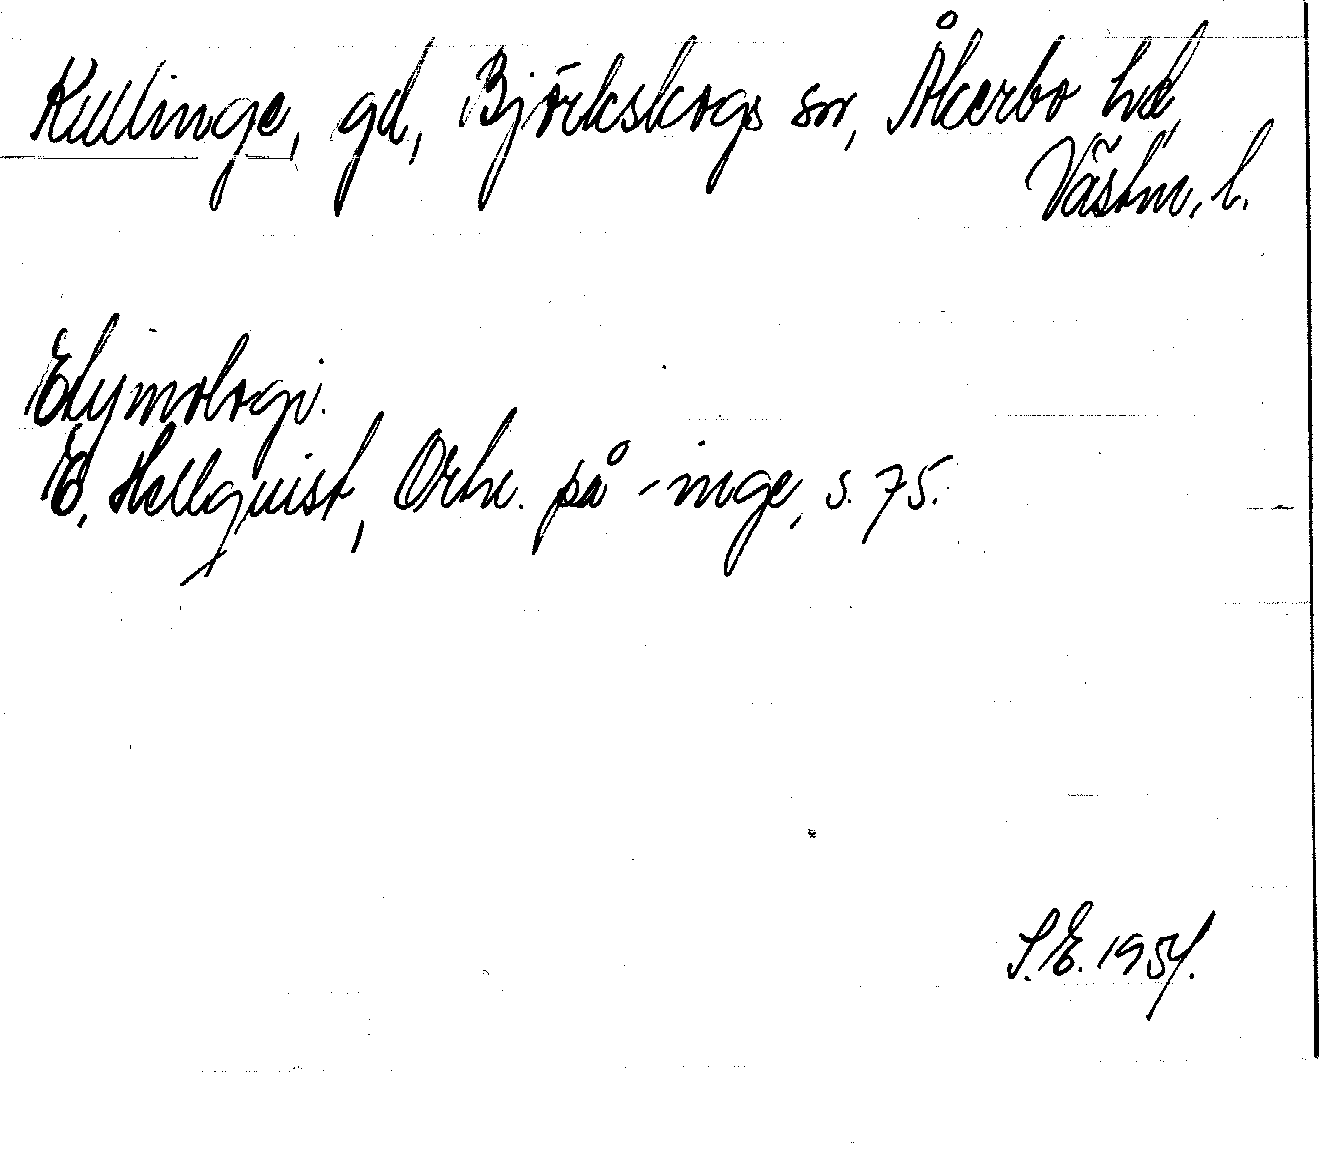 Kullinge, gd, Björkskogs sn, Åkerbo hd,
Västm. l.
Etymologi.
E. Hellquist, Ortn. på -inge, s. 75.
S.E. 1954.